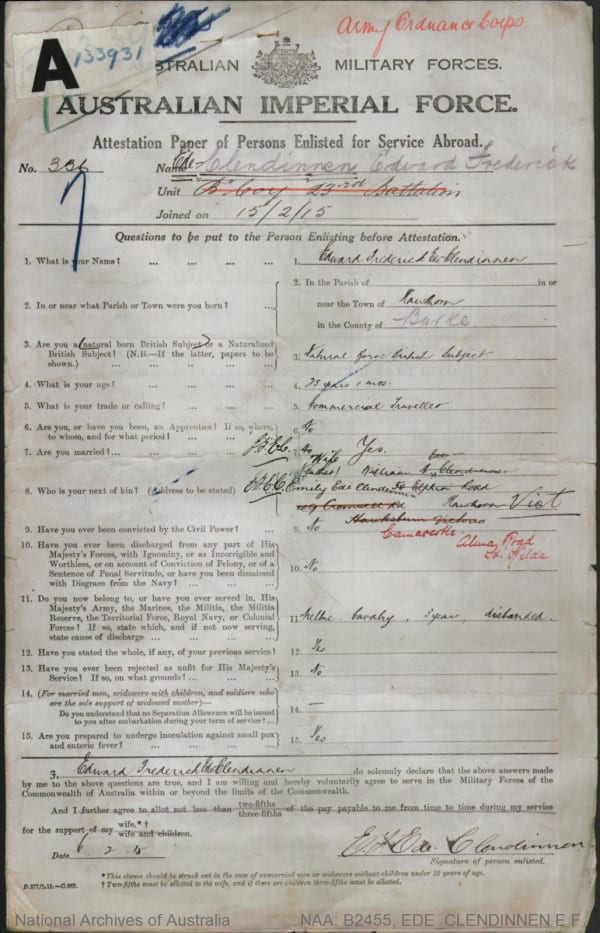 Army Ordnance Corps
A
133931
STRALIAN MILITARY FORCES.
AUSTRALIAN IMPERIAL FORCE.
Attestation Paper of Persons Enlisted for Service Abroad.
No. 336 Name Ede-Clendinnen Edward Frederick
Unit B Coy 23rd Battalion
Joined on 15/2/15
Questions to be put to the Person Enlisting before Attestation.
1. What is your Name? ... ... ... ... 1. Edward Frederick Ede Clendinnen
2. In or near what Parish or Town were you born? ...
2. In the Parish of in or
near the Town of Hawthorn
in the County of Burke
3. Are you a (natural born British Subject) or a Naturalized
British Subject? (N.B.—If the latter, papers to be
shown.) ... ... ... ... 3. Natural Born British Subject
4. What is your age? ... ... ... ... 4. 23 years 1 mos.
5. What is your trade or calling? ... ... ... 5. Commercial Traveller
6. Are you, or have you been, an Apprentice? If so, where,
to whom, and for what period? ... ... 6. No
7. Are you married? ... ... ... ... 7. No Yes.
8. Who is your next of kin? (Address to be stated) ...
Wife
(father) William Clendinnen
Emily Ede Clendinnen Road
Cromwell Rd Hawthorn Vict
Hawksburn Victoria
Alma Road
St. Kilda
9. Have you ever been convicted by the Civil Power? ... 9. No
10. Have you ever been discharged from any part of His
Majesty's Forces, with Ignominy, or as Incorrigible and
Worthless, or on account of Conviction of Felony, or of a
Sentence of Penal Servitude, or have you been dismissed
with Disgrace from the Navy? ... ... 10. No
11. Do you now belong to, or have you ever served in, His
Majesty's Army, the Marines, the Militia, the Militia
Reserve, the Territorial Force, Royal Navy, or Colonial
Forces? If so, state which, and if not now serving,
state cause of discharge ... ... ... 11. Melbne. Cavalry, year, disbanded.
12. Have you stated the whole, if any, of your previous service? 12. Yes
13. Have you ever been rejected as unfit for His Majesty's
Service? If so, on what grounds? ... ... 13. No
14. (For married men, widowers with children, and soldiers who
are the sole support of widowed mother)—
Do you understand that no Separation Allowance will be issued
to you after embarkation during your term of service? ... 14. —
15. Are you prepared to undergo inoculation against small pox
and enteric fever? ... ... ... ... 15. Yes
I, Edward Frederick Ede Clendinnen do solemnly declare that the above answers made
by me to the above questions are true, and I am willing and hereby voluntarily agree to serve in the Military Forces of the
Commonwealth of Australia within or beyond the limits of the Commonwealth.
And I further agree to allot not less than two-fifths three-fifths of the pay payable to me from time to time during my service
for the support of my wife.*† wife and children.
Date 6. 2. 15 E F Ede Clendinnen
Signature of person enlisted.
*This clause should be struck out in the case of unmarried men or widowers without children under 18 years of age.
† Two-fifths must be allotted to the wife, and if there are children three-fifths must be allotted.
National Archives of Australia NAA: B2455, EDE_CLENDINNEN E F